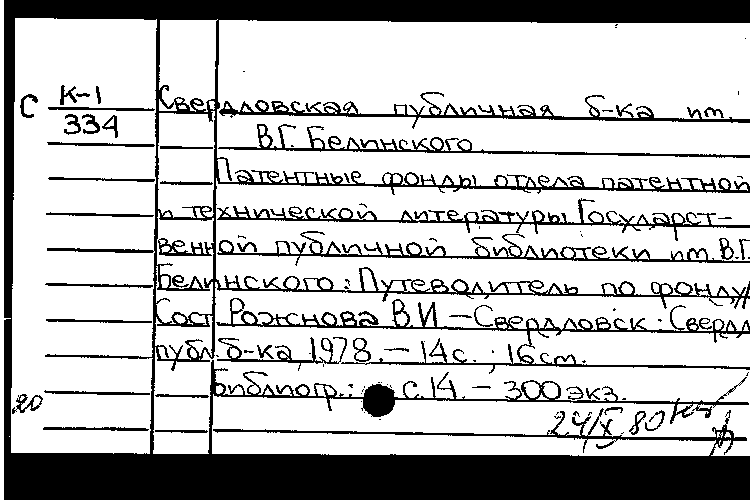 С К-1 Свердловская публичная б-ка им.
334 В.Г. Белинского.
Патентные фонды отдела патентной
и технической литературы Государст-
венной публичной библиотеки им. В.Г.
Белинского: Путеводитель по фонду/
Сост. Рожнова В.И.-Свердловск: Свердл.
публ. б-ка, 1978.-14 с.; 16 см.
Библиогр.: с. 14. - 300 экз.
20
24/X 80